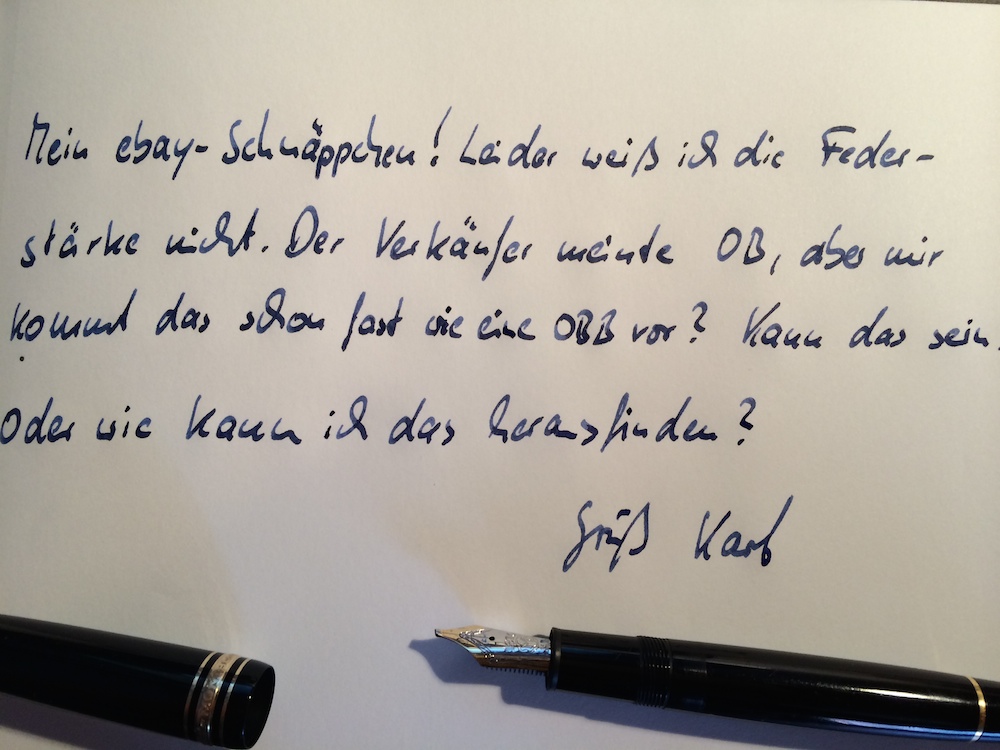 Mein ebay-Schnäppchen! Leider weiß ich die Feder-
stärke nicht. Der Verkäufer meinte OB, aber mir
kommt das schon fast wie eine OBB vor? Kann das sein.
Oder wie kann ich das herausfinden?
Grüß Karl